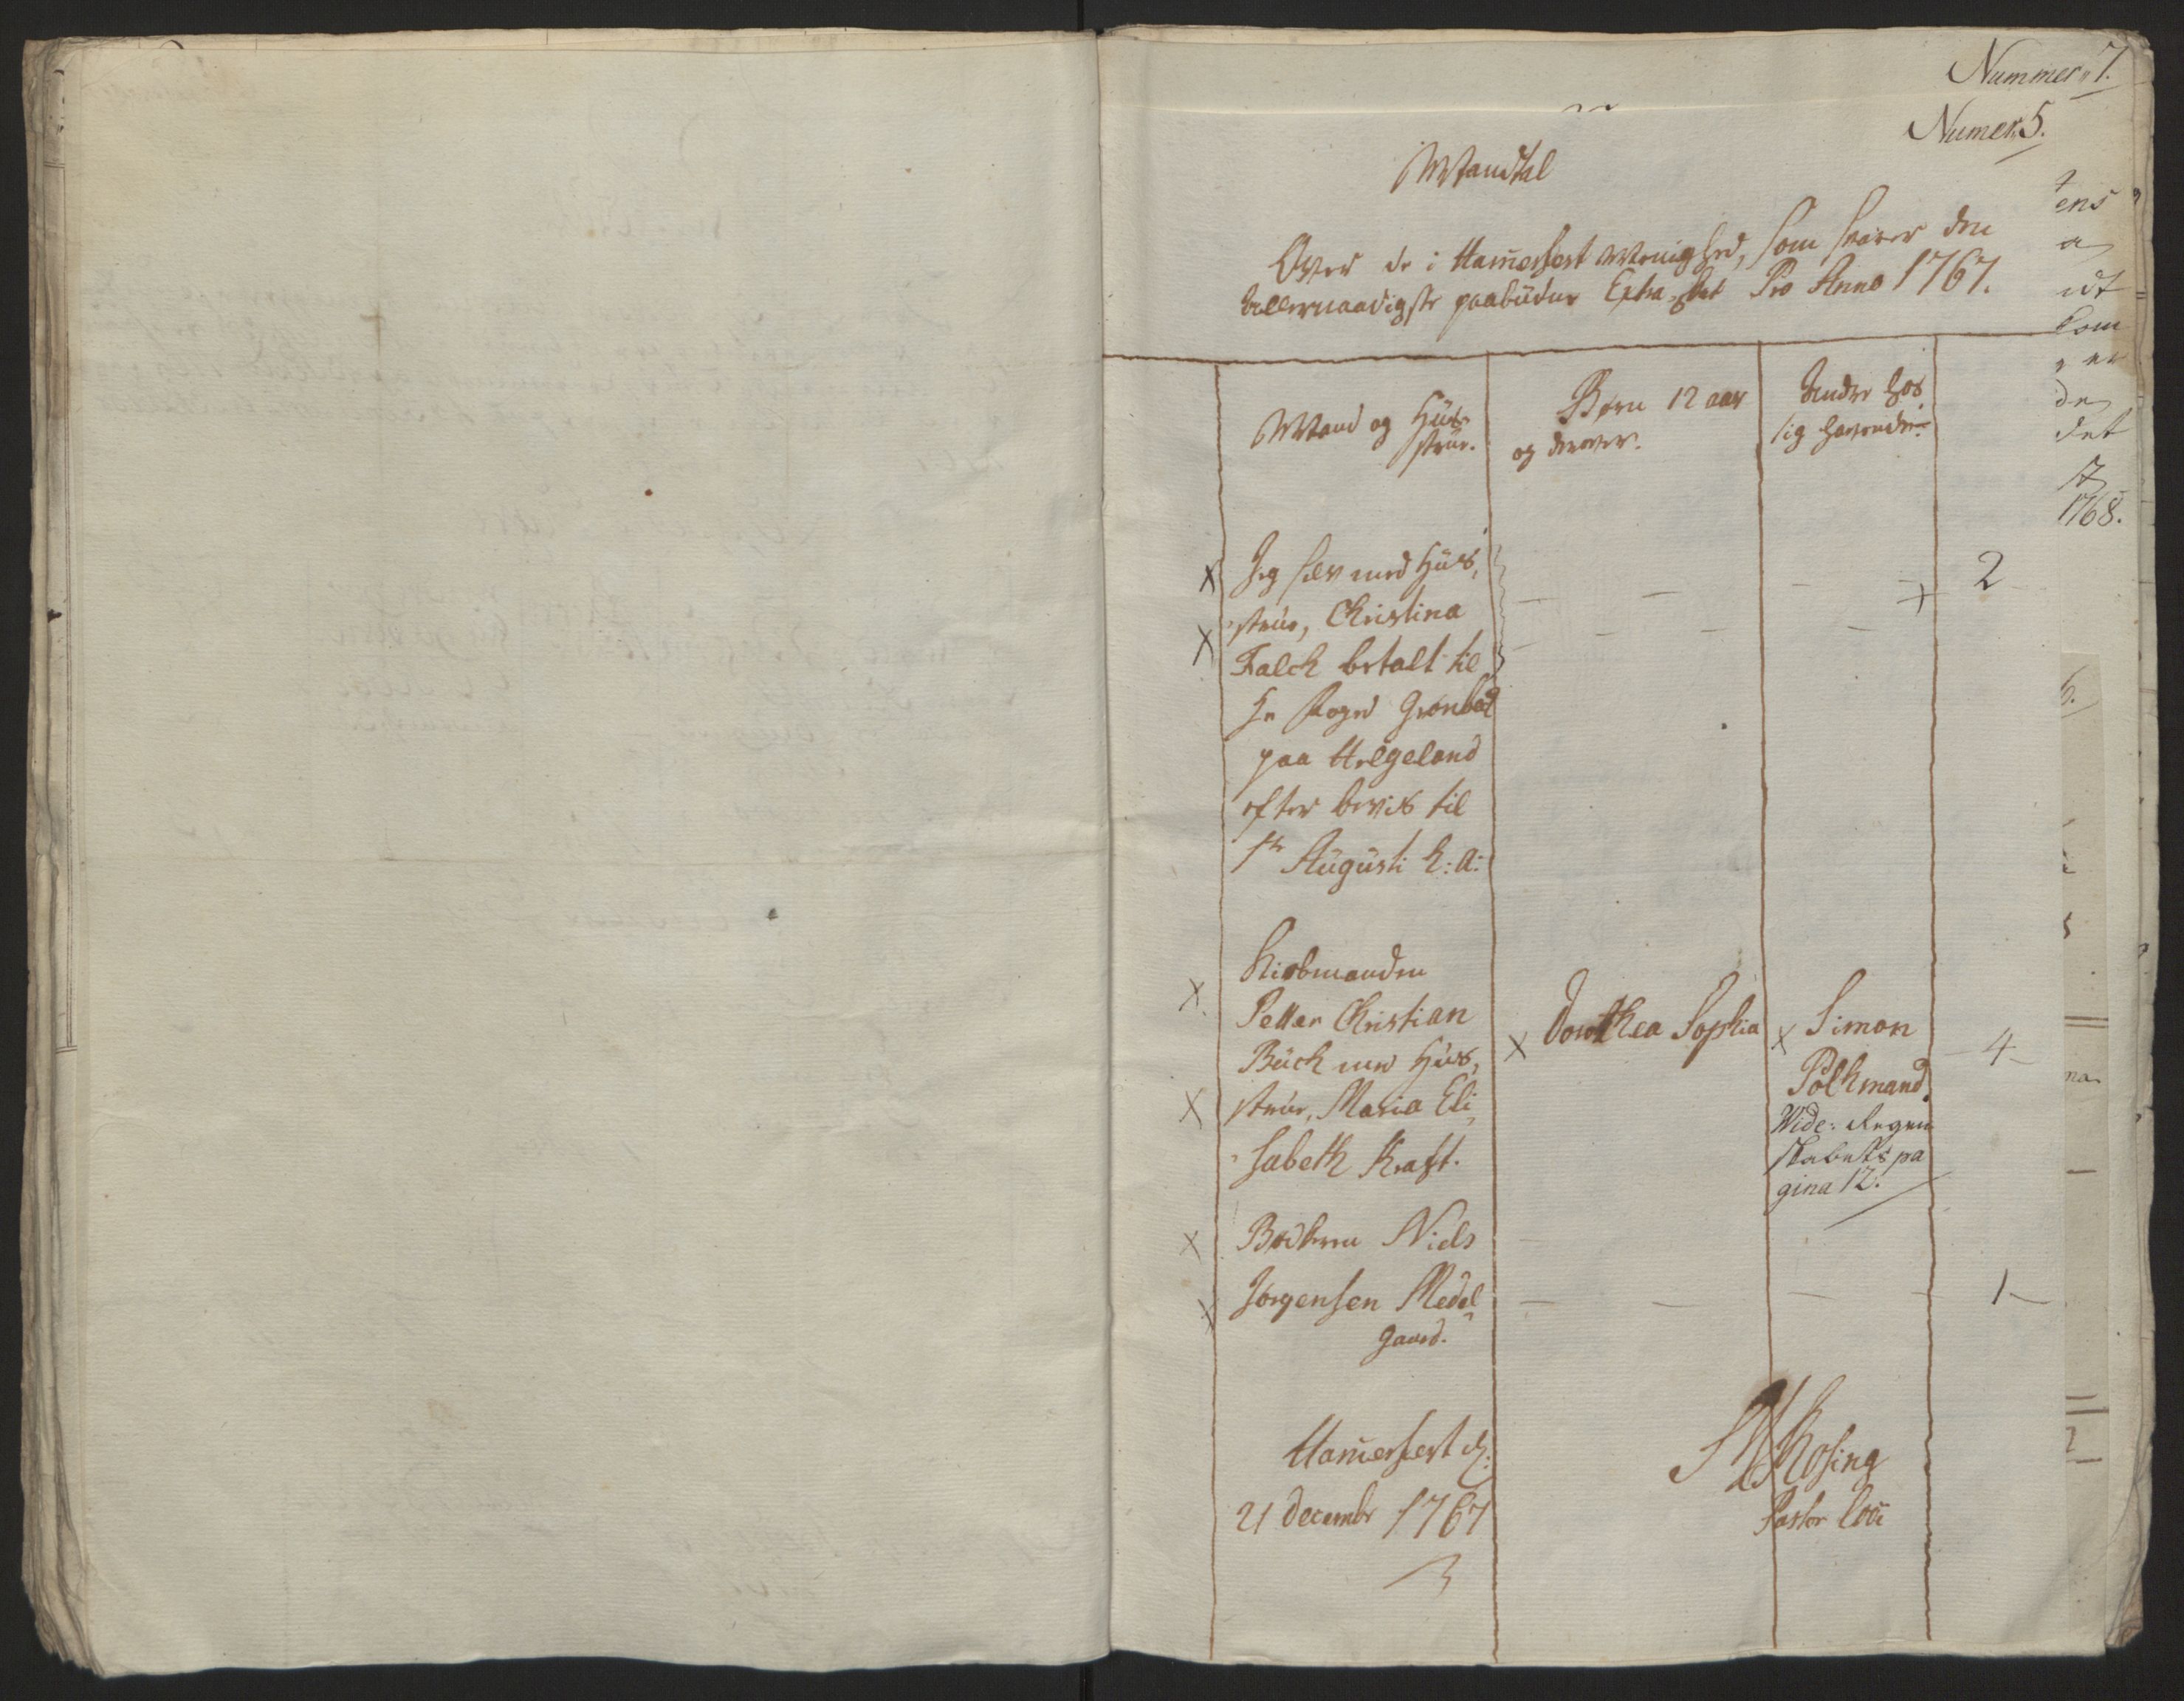 Nummer 7.
Numer 5.
Mandtal
Over de i Ham̄erfest Menighed, som svarer den
allernaadigste paabüdne Extra-Skat Pro Anno 1767.
Mand og Hüs-
strüe.
Børn 12 aar
og derover.
Andre hos
sig havende.
Jeg selv med Hüs,
strüe, Christina
Falch betalt til
Hr Foged Grönbeck
paa Helgeland
efter beviis til
1te Augusti h: a:
2
Kiøbmanden
Petter Christian
Büch med Hüs,
strüe, Maria Eli,
sabeth Kraft.
Dorothea Sophia
Simon
Polkmand.
Wide: Regen
skabets pa
gina 12.
4
Bødkeren Niels
Jörgensen Medel
gaard.
1
Ham̄erfest d:
21 Decembr 1767
Kosing
Pastor Loci
ens
idt
Som
de
det
1768.